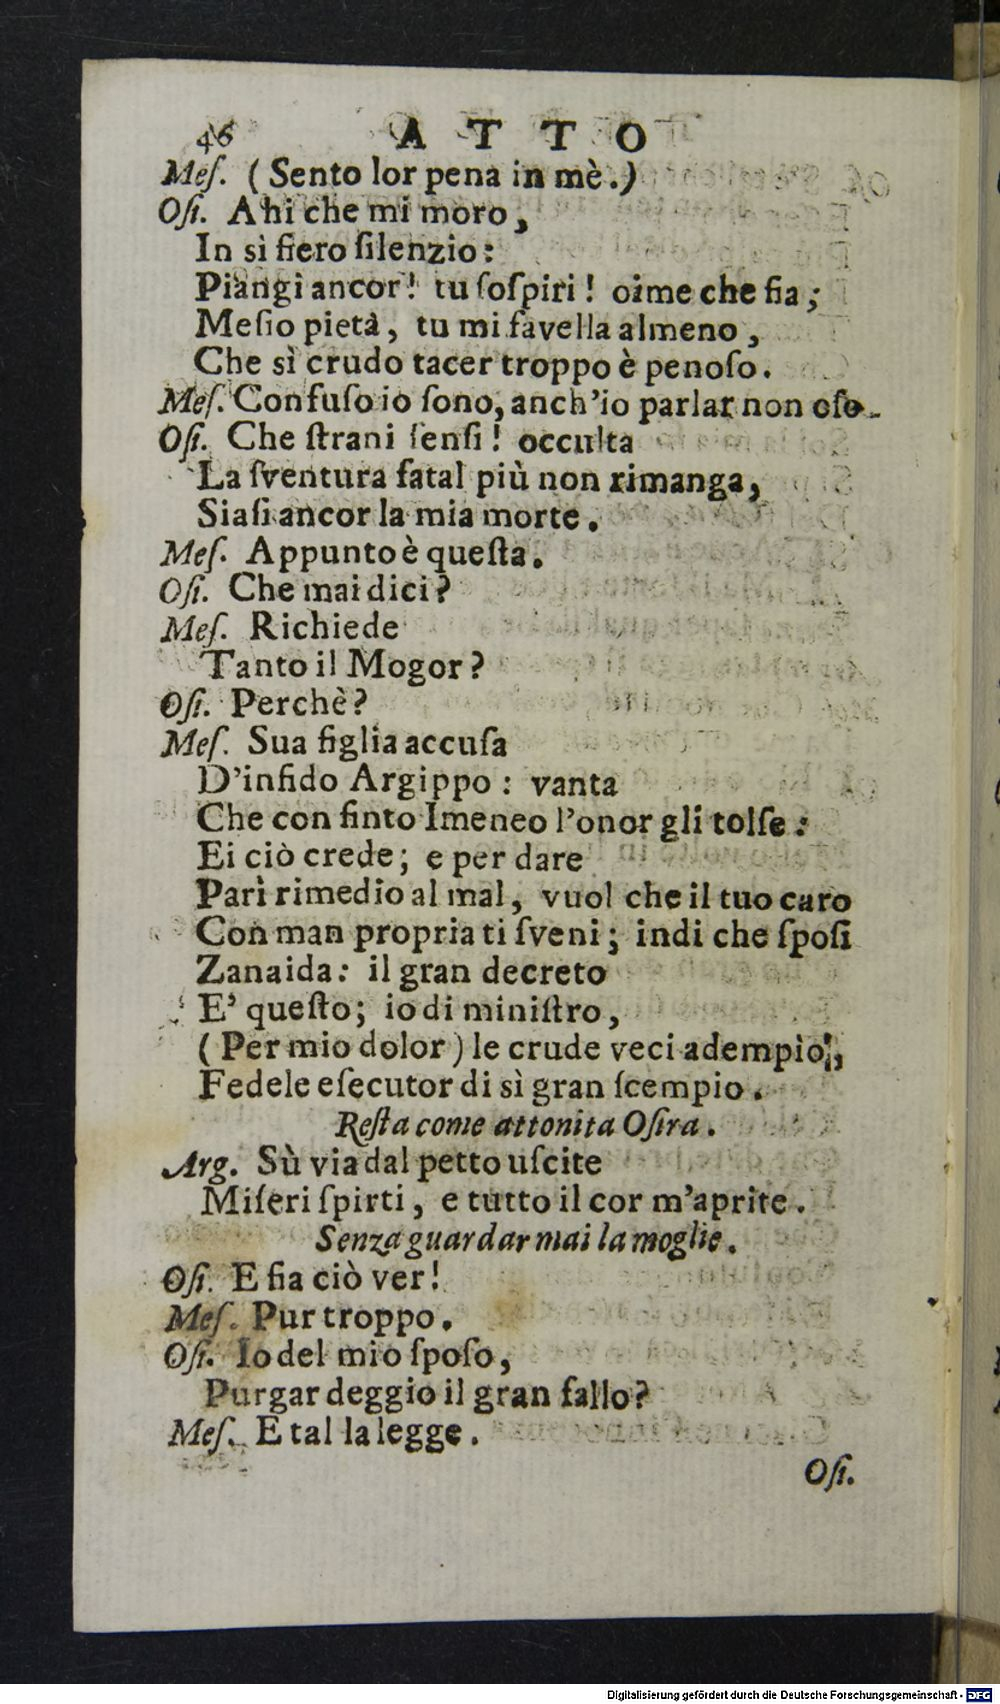 46 ATTO
Meſ. (Sento lor pena in mè.)
Oſi. Ahi che mi moro,
In sì fiero ſilenzio:
Piangi ancor! tu ſoſpiri! oime che fia;
Meſio pietà, tu mi favella almeno,
Che sì crudo tacer troppo è penoſo.
Meſ. Confuſo io ſono, anch'io parlar non oſo.
Oſi. Che ſtrani ſenſi! occulta
La ſventura fatal più non rimanga,
Siaſi ancor la mia morte.
Meſ. Appunto è queſta.
Oſi. Che mai dici?
Meſ. Richiede
Tanto il Mogor?
Oſi. Perchè?
Meſ. Sua figlia accuſa
D'infido Argippo: vanta
Che con finto Imeneo l'onor gli tolſe:
Ei ciò crede; e per dare
Parì rimedio al mal, vuol che il tuo caro
Con man propria ti ſveni; indi che ſpoſi
Zanaida: il gran decreto
E' queſto; io di miniſtro,
(Per mio dolor) le crude veci adempìo!,
Fedele eſecutor di sì gran ſcempio.
Reſta come attonita Oſira.
Arg. Sù via dal petto uſcite
Miſeri ſpirti, e tutto il cor m'aprite.
Senza guardar mai la moglie.
Oſi. E fia ciò ver!
Meſ. Pur troppo.
Oſi. Io del mio ſpoſo,
Purgar deggio il gran fallo?
Meſ. E tal la legge.
Oſi.
Digitalisierung gefördert durch die Deutsche Forschungsgemeinschaft - DFG